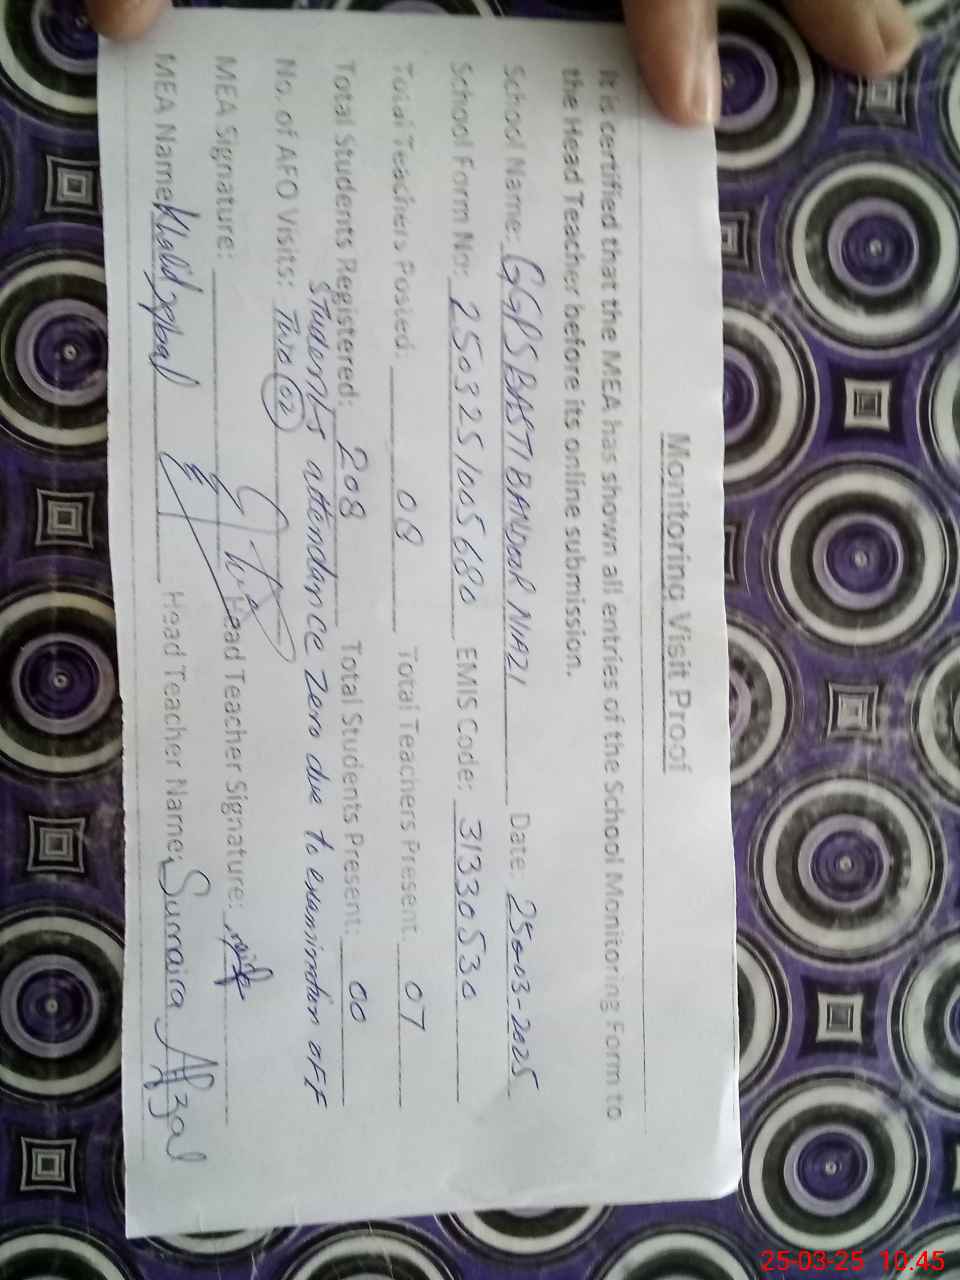 Monitoring Visit Proof
It is certified that the MEA has shown all entries of the School Monitoring Form to
the Head Teacher before its online submission.
School Name: GGPS BASTI BANDOOR NIAZI Date: 25-03-2025
School Form No: 2503251005680 EMIS Code: 31330530
Total Teachers Posted: 08 Total Teachers Present 07
Total Students Registered: 208 Total Students Present: 00
Students attendance zero due to examination off
No. of AFO Visits: Two 02
MEA Signature: Head Teacher Signature:
MEA Name Khalid Iqbal Head Teacher Name: Surraira Afzal
25-03-25 10:45